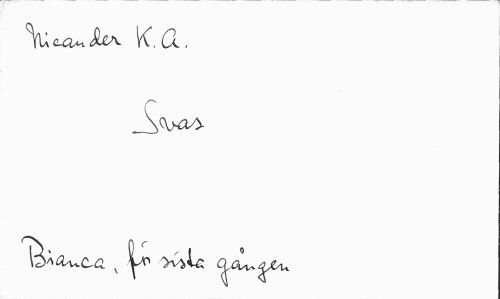 Nicander K. A.
Svar
Bianca, för sista gången